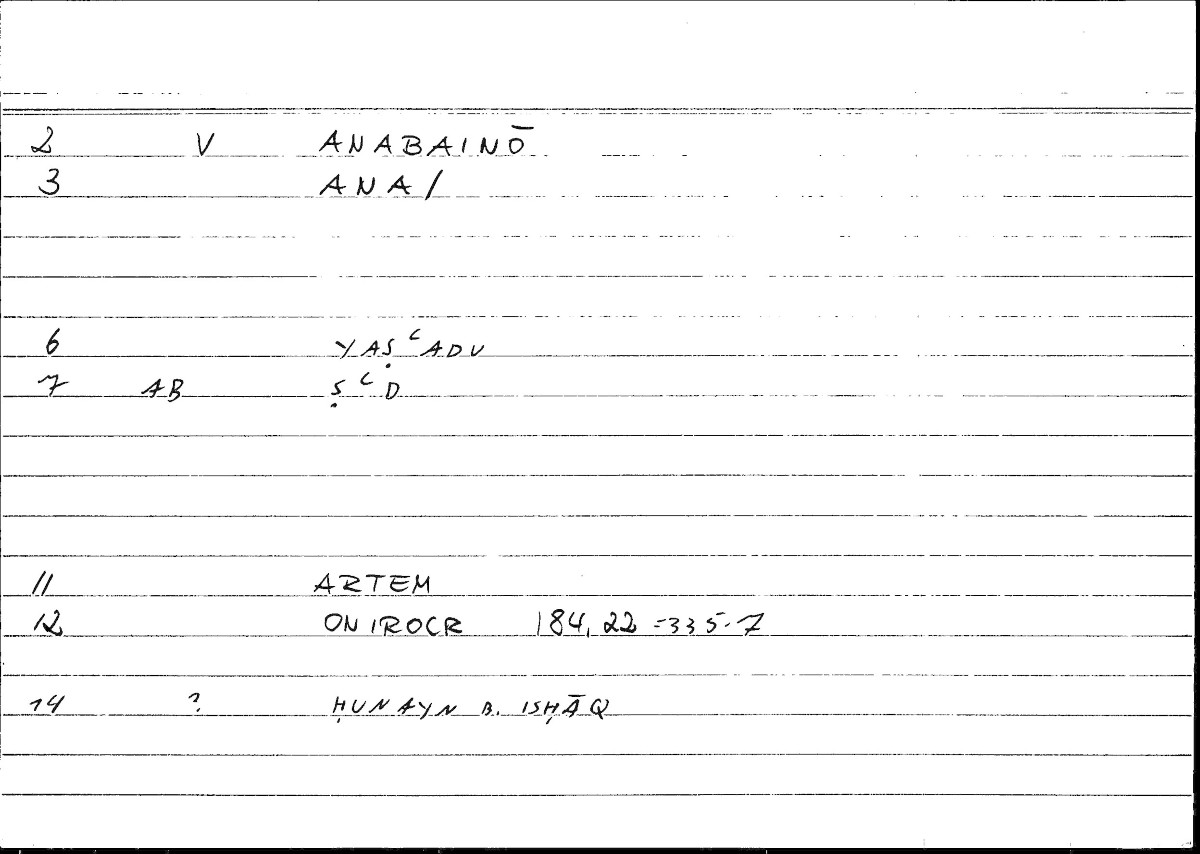 2 V ANABAINŌ
3 ANA/
6 YAṢʿADU
7 AB ṢʿD
11 ARTEM
12 ONIROCR 184,22=335.7
14 ? ḤUNAYN B. ISḤĀQ